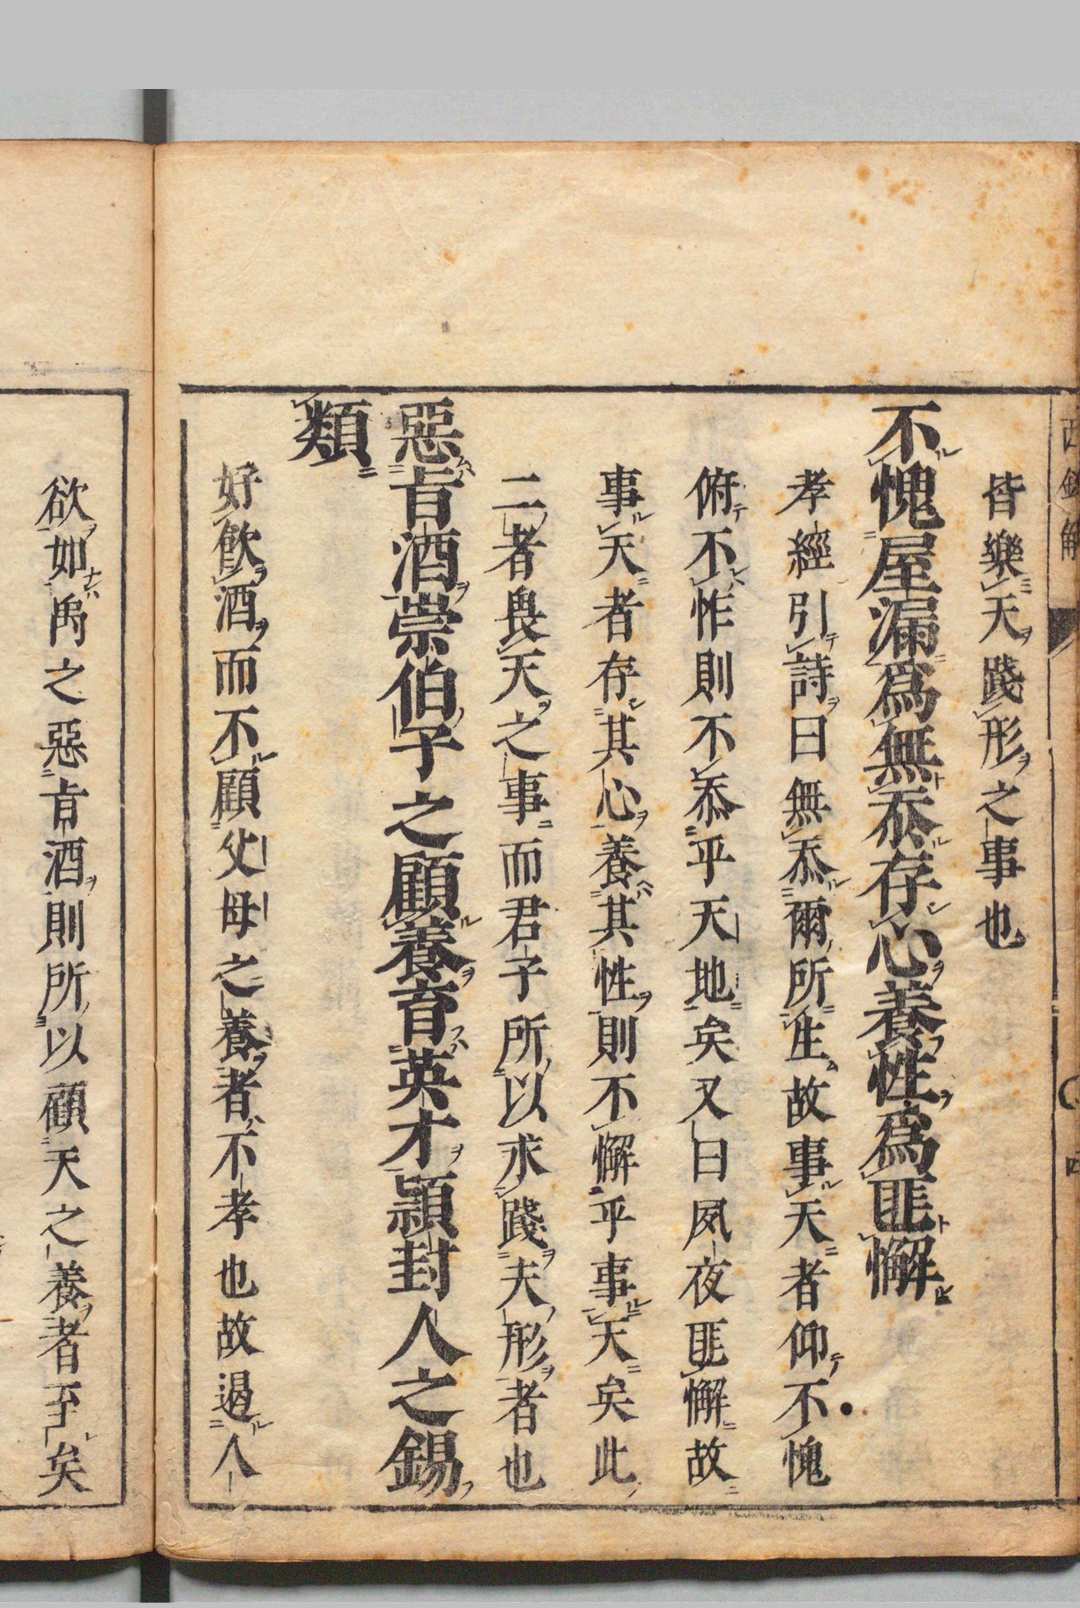 西銘解
皆樂天踐形之事也
不愧屋漏爲無忝存心養性爲匪懈
孝經引詩曰無忝爾所生故事天者仰不愧
俯不怍則不忝乎天地矣又曰夙夜匪懈故
事天者存其心養其性則不懈乎事天矣此
二者畏天之事而君子所以求踐夫形者也
惡旨酒崇伯子之顧養育英才頴封人之錫
類
好飮酒而不顧父母之養者不孝也故遏人
欲如禹之惡旨酒則所以顧天之養者至矣